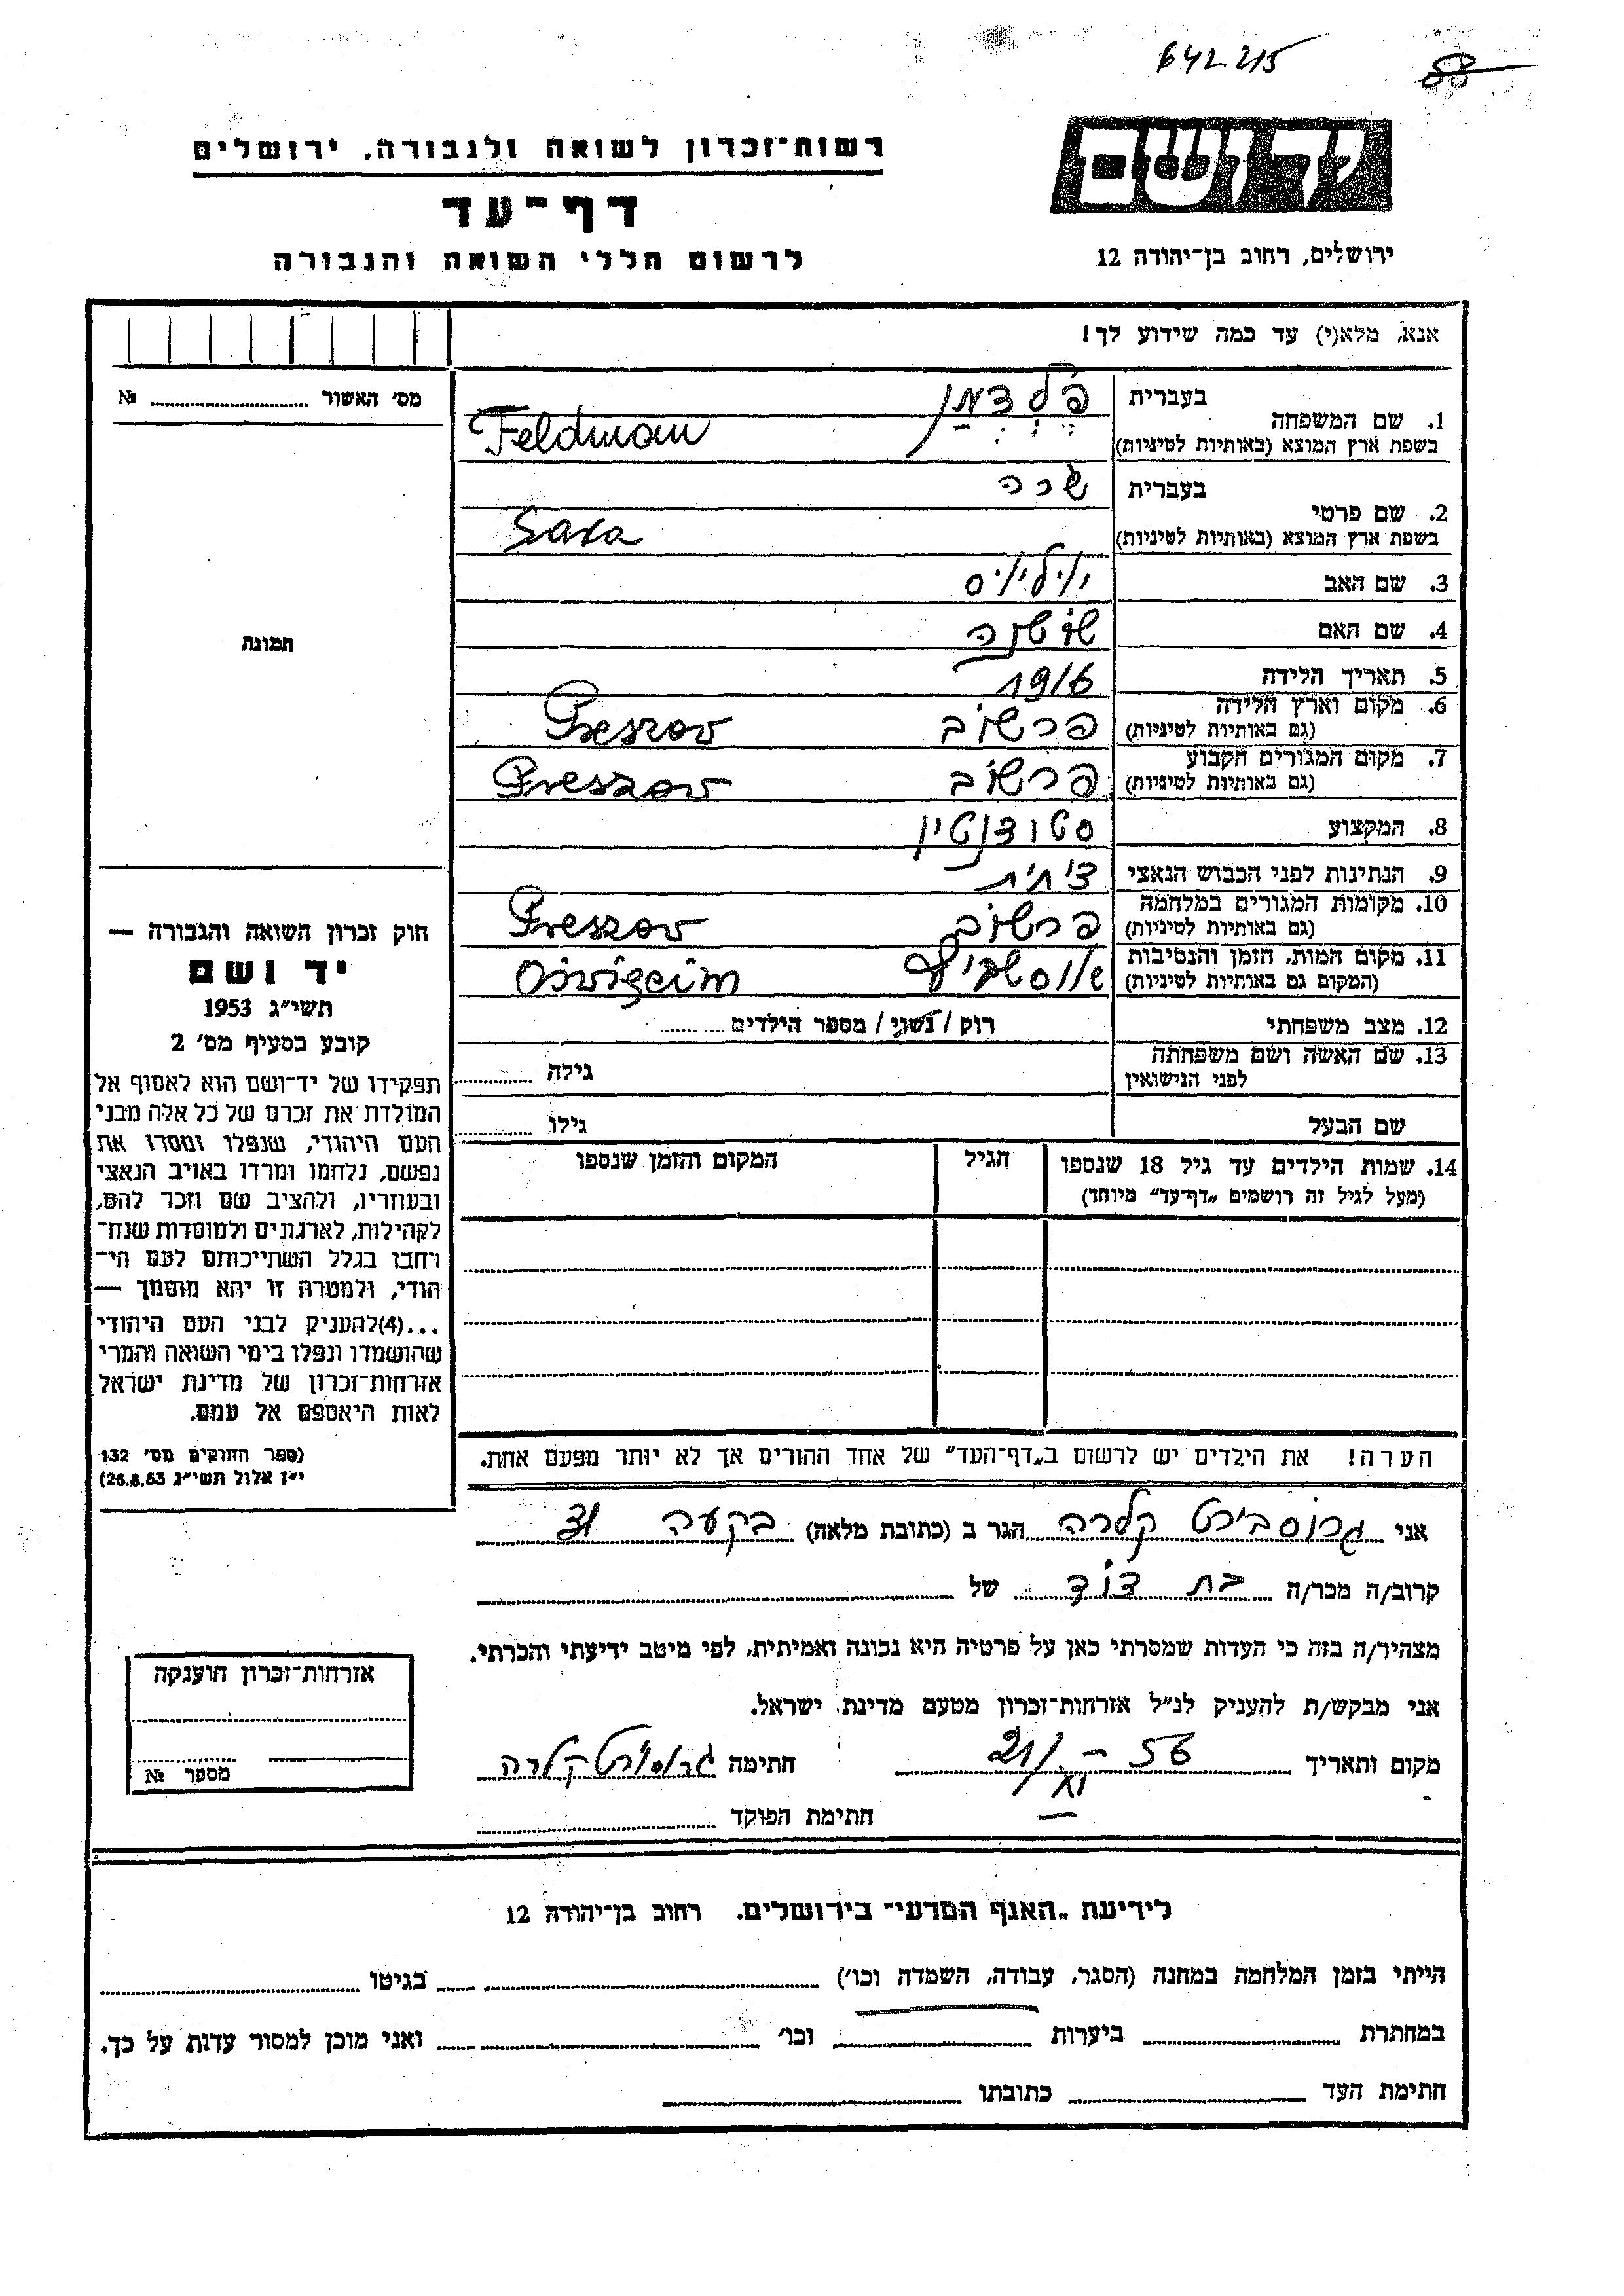 642215
58
יד ושם
רשות־זכרון לשואה ולגבורה, ירושלים
דף־עד
לרשום חללי השואה והגבורה
ירושלים, רחוב בן־יהודה 12
אנא, מלא(י) עד כמה שידוע לך!
מס׳ האשור № ........
1. שם המשפחה
בעברית פלדמן
בשפת ארץ המוצא (באותיות לטיניות) Feldman
2. שם פרטי
בעברית שרה
בשפת ארץ המוצא (באותיות לטיניות) Sara
3. שם האב יוליוס
4. שם האם שושנה
5. תאריך הלידה 1916
6. מקום וארץ הלידה
(גם באותיות לטיניות) פרשוב Preszov
7. מקום המגורים הקבוע
(גם באותיות לטיניות) פרשוב Preszov
8. המקצוע סטודנטין
9. הנתינות לפני הכבוש הנאצי צ׳כית
10. מקומות המגורים במלחמה
(גם באותיות לטיניות) פרשוב Preszov
11. מקום המות, הזמן והנסיבות
(המקום גם באותיות לטיניות)
12. מצב משפחתי רוק / נשוי / מספר הילדים ........
13. שם האשה ושם משפחתה
לפני הנישואין
גילה ........
שם הבעל גילו ........
14. שמות הילדים עד גיל 18 שנספו
(מעל לגיל זה רושמים „דף־עד״ מיוחד)
הגיל
המקום והזמן שנספו
הערה! את הילדים יש לרשום ב„דף־העד״ של אחד ההורים אך לא יותר מפעם אחת.
תמונה
חוק זכרון השואה והגבורה —
יד ושם
תשי״ג 1953
קובע בסעיף מס׳ 2
תפקידו של יד־ושם הוא לאסוף אל
המולדת את זכרם של כל אלה מבני
העם היהודי, שנפלו ומסרו את
נפשם, נלחמו ומרדו באויב הנאצי
ובעוזריו, ולהציב שם וזכר להם,
לקהילות, לארגונים ולמוסדות שנח־
רבו בגלל השתייכותם לעם הי־
הודי, ולמטרה זו יהא מוסמך —
...(4)להעניק לבני העם היהודי
שהושמדו ונפלו בימי השואה והמרי
אזרחות־זכרון של מדינת ישראל
לאות היאספם אל עמם.
(ספר החוקים מס׳ 132
י״ז אלול תשי״ג 26.8.53)
אני גרוסבירט קלרה הגר ב (כתובת מלאה) בקעה
קרוב/ה מכר/ה בת דוד של
מצהיר/ה בזה כי העדות שמסרתי כאן על פרטיה היא נכונה ואמיתית, לפי מיטב ידיעתי והכרתי.
אני מבקש/ת להעניק לנ״ל אזרחות־זכרון מטעם מדינת ישראל.
מקום ותאריך 21/XI - 56 חתימה גרוסוירט קלרה
חתימת הפוקד
אזרחות־זכרון הוענקה
מספר №
לידיעת „האגף המדעי״ בירושלים, רחוב בן־יהודה 12
הייתי בזמן המלחמה במחנה (הסגר, עבודה, השמדה וכו׳) ........ בגיטו ........
במחתרת ........ ביערות ........ וכו׳ ........ ואני מוכן למסור עדות על כך.
חתימת העד ........ כתובתו ........